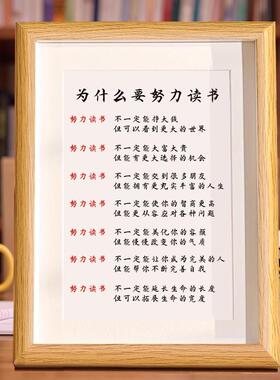 为什么要努力读书
努力读书 不一定能挣大钱
但可以看到更大的世界
努力读书 不一定能大富大贵
但能有更大选择的机会
努力读书 不一定能交到很多朋友
但能拥有更充实丰富的人生
努力读书 不一定能使你的智商更高
但能更从容应对各种问题
努力读书 不一定能美化你的容颜
但能慢慢改变你的气质
努力读书 不一定能让你成为完美的人
但能帮你不断完善自我
努力读书 不一定能延长生命的长度
但可以拓展生命的宽度